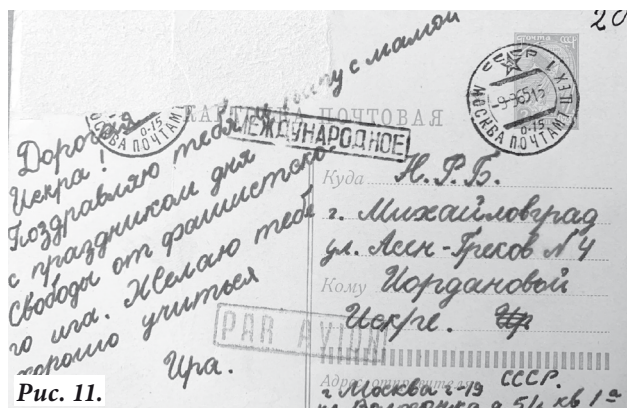 20
СССР
МОСКВА ПОЧТАМТ
-9-965 15
0-15
МОСКВА ПОЧТАМТ
0-15
КАРТОЧКА ПОЧТОВАЯ
МЕЖДУНАРОДНОЕ
с мамой
Дорогая
Искра!
Поздравляю тебя
с праздником дня
Свободы от фашистско
го ига. Желаю тебе
хорошо учиться
Ира.
PAR AVION
Куда Н.Р.Б.
г. Михайловград
ул. Асен-Греков N 4
Кому Иордановой
Искре.
Адрес отправителя СССР.
г Москва г-19
ул. д 5/1 кв 1а
Рис. 11.